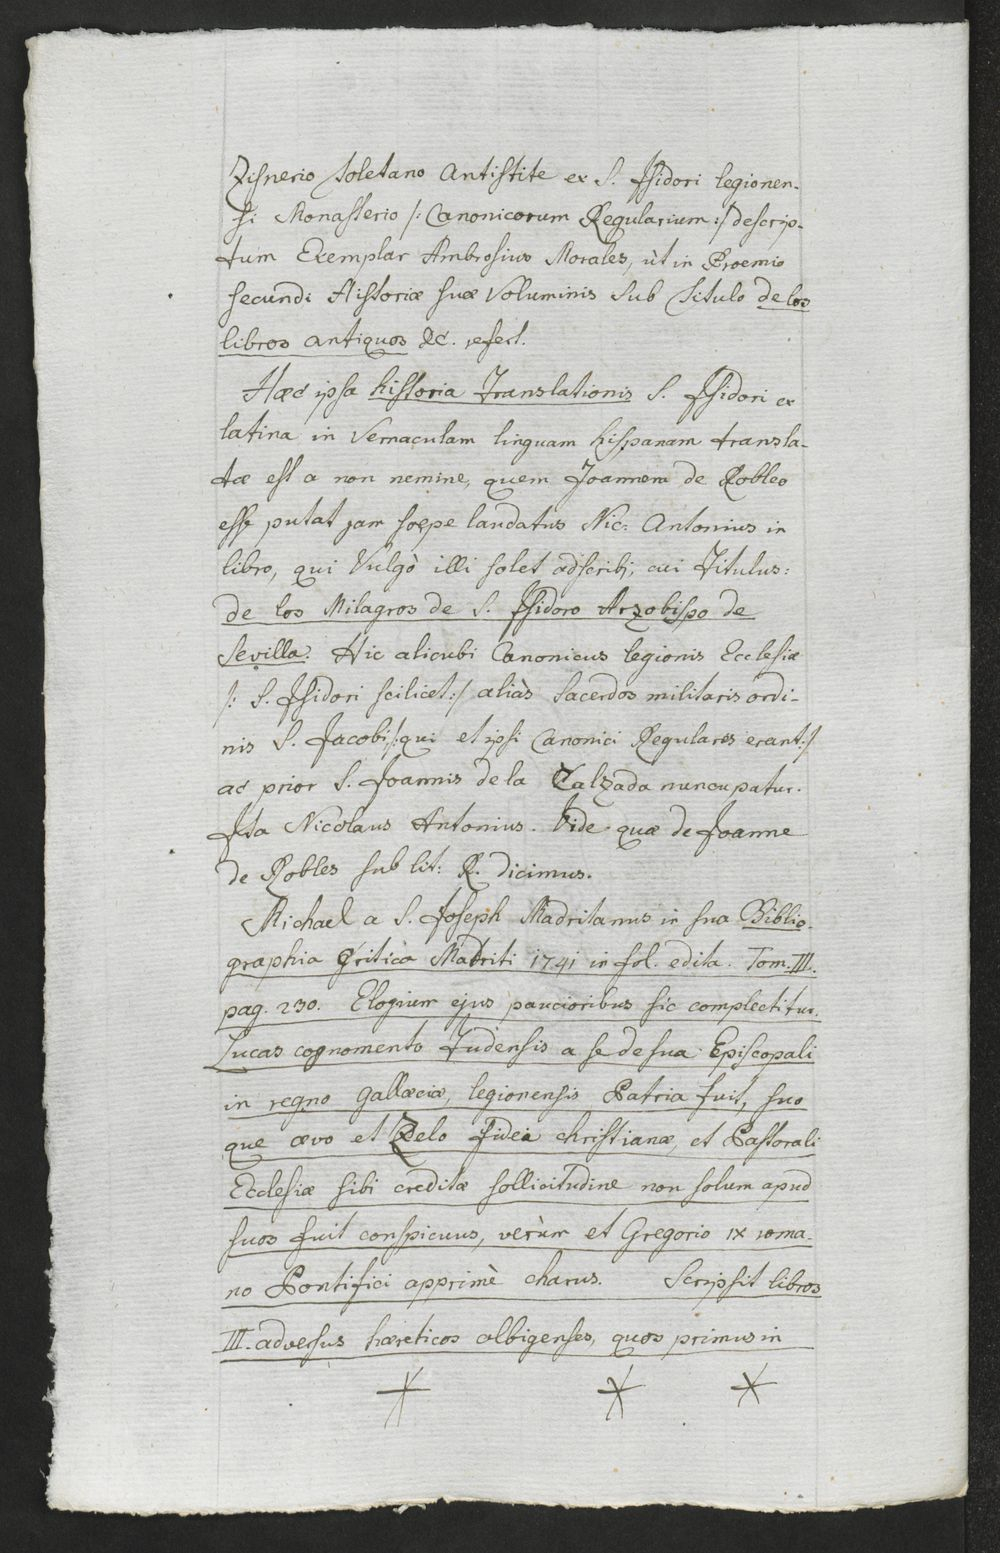 Zisnerio Toletano Antistite ex S. Isidori legionen-
si Monasterio /: Canonicorum Regularium :/ descrip-
tum Exemplar Ambrosius Morales, ùt in Proemio
secundi Historiæ suæ Voluminis sub titulo de los
libros antiquos &c. refert.
Hæc ipsa historia Translationis S. Isidori ex
latina in Vernaculam linguam hispanam transla-
tæ est a non nemine, quem Joannem de Robles
esse putat jam sæpe laudatus Nic: Antonius in
libro, qui Vulgò illi solet adscribi; cui Titulus:
de los Milagros de S. Isidoro Arzobispo de
Sevilla. Hic alicubi Canonicus legionis Ecclesiæ
/: S. Isidori scilicet :/ aliàs Sacerdos militaris ordi-
nis S. Jacobi /: qui et ipsi Canonici Regulares erant :/
ac prior S. Joannis de la Calzada nuncupatur.
Ita Nicolaus Antonius. Vide quæ de Joanne
de Robles sub lit: R. dicimus.
Michael a S. Joseph Madritanus in sua Biblio-
graphia Critica Madriti 1741 in fol. edita. Tom. III.
pag. 230. Elogium ejus paucioribus sic complectitur.
Lucas cognomento Tudensis a se de sua Episcopali
in regno Gallæciæ, legionensis Patria fuit, suo
que ævo et Zelo fidei christianæ, et Pastorali
Ecclesiæ sibi creditæ sollicitudine non solum apud
suos fuit conspicuus, verùm et Gregorio IX roma-
no Pontifici apprimè charus. Scripsit libros
III. adversus hæreticos albigenses, quos primus in